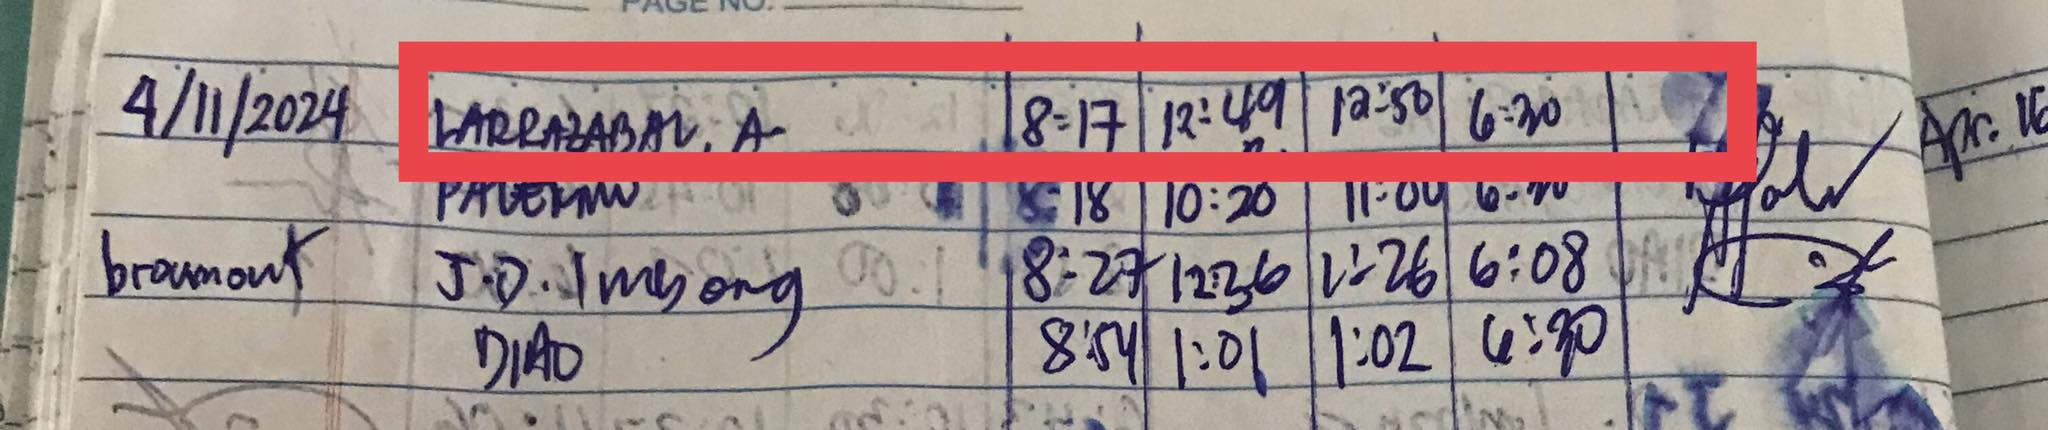 PAGE NO.
4/11/2024 LARRAZABAL, A 8:17 12:49 12:50 6:30
PALERMO 8:18 10:20 11:00 6:30
brownout J.D. Imbong 8:27 12:36 1:26 6:08
DIAO 8:54 1:01 1:02 6:30
Apr.